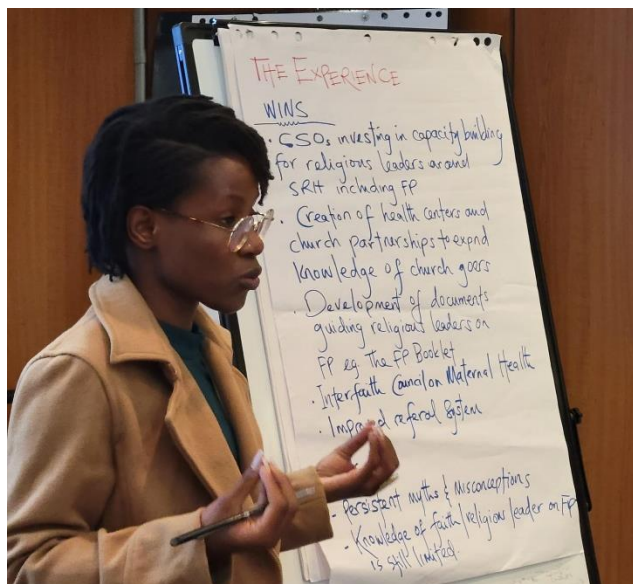 THE EXPERIENCE
WINS
· CSOs investing in capacity building
for religious leaders around
SRH including FP
· Creation of health centers and
church partnerships to expnd
knowledge of church goers
· Development of documents
guiding religious leaders on
FP eg The FP Booklet
· Interfaith Council on Maternal Health
· Improved referal System
- Persistent myths & misconceptions
- Knowledge of faith/religious leader on FP
is still limited.